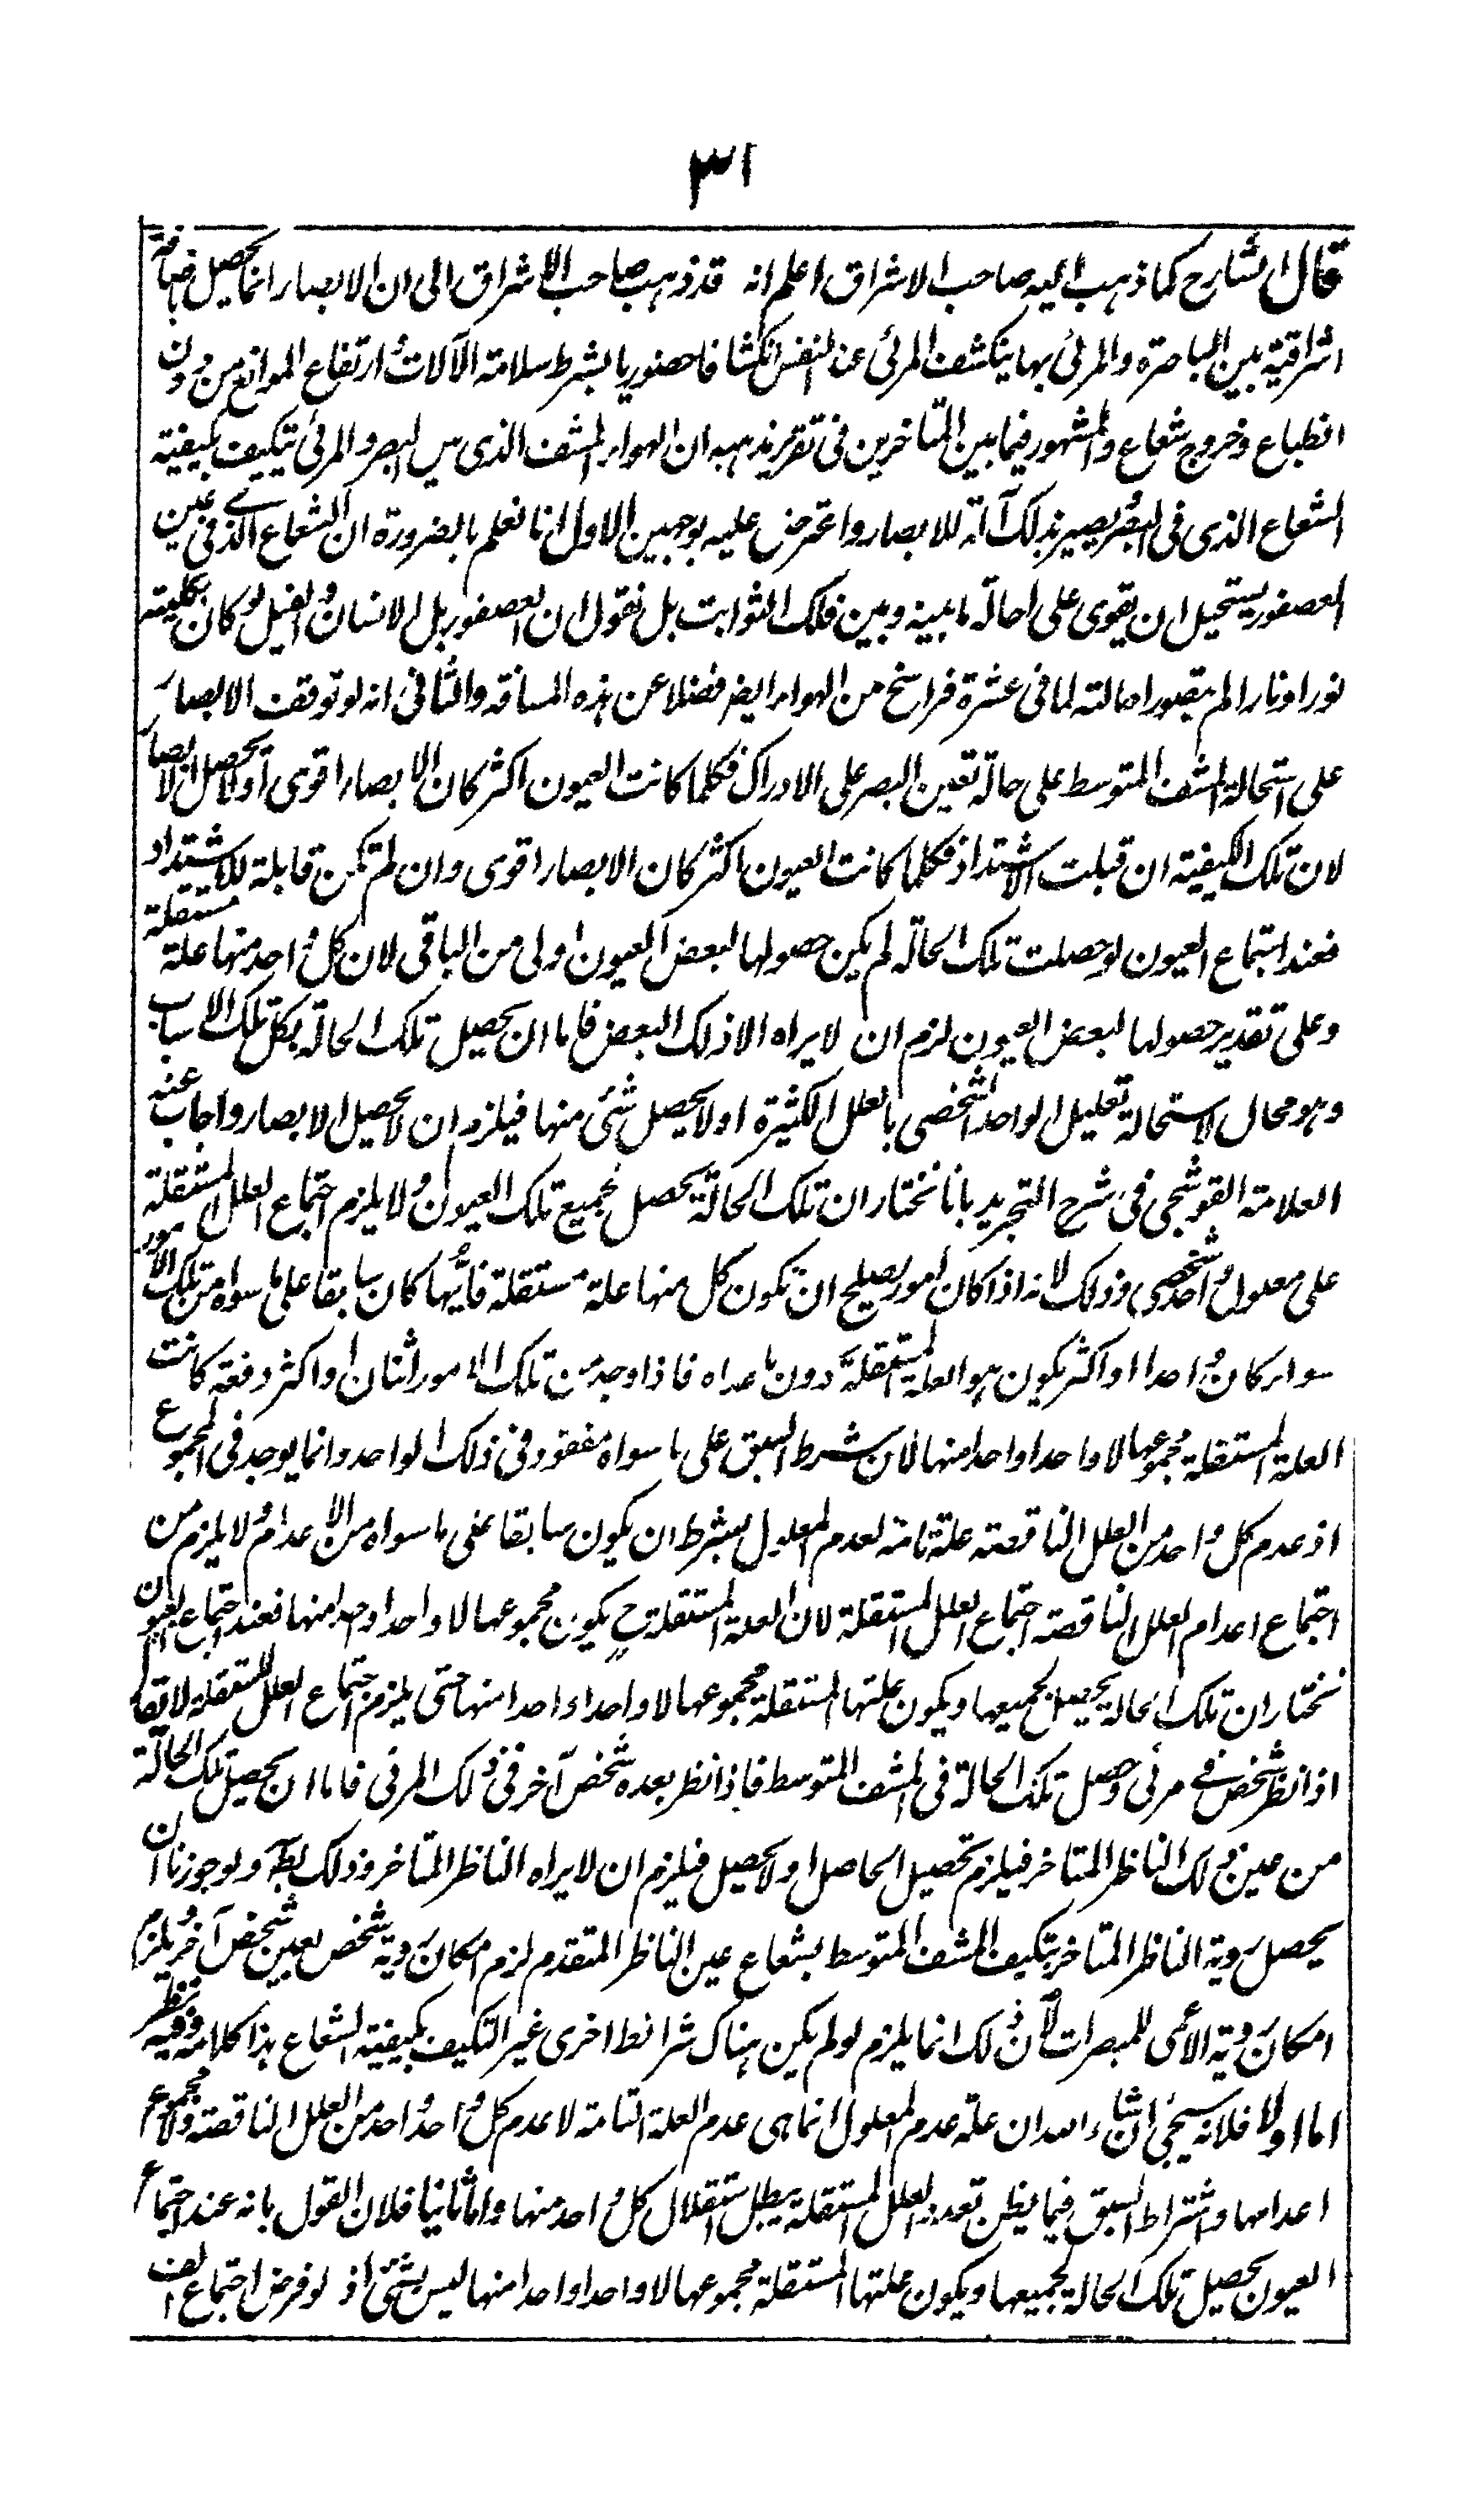 ٣١
قال الشارح كما ذهب اليه صاحب الاشراق اعلم انه قد ذهب صاحب الاشراق الى ان الابصار انما يحصل باضافة
اشراقية بين الباصرة والمرئى بها ينكشف المرئى عند النفس انكشافا حضوريا بشرط سلامة الآلات وارتفاع الموانع من دون
انطباع وخروج شعاع والمشهور فيما بين المتاخرين فى تقرير مذهبه ان الهواء المشف الذى بين البصر والمرئى يتكيف بكيفية
الشعاع الذى فى البصر ويصير بذلك آلة للابصار واعترض عليه بوجهين الاول انا نعلم بالضرورة ان الشعاع الذى فى عين
العصفور يستحيل ان يقوى على احالة ما بينه وبين فلك الثوابت بل نقول ان العصفور بل الانسان والفيل لو كان بكليته
نورا ونارا لم يتصور احالته لما فى عشرة فراسخ من الهواء ايضا فضلا عن هذه المسافة والثانى انه لو توقف الابصار
على استحالة المشف المتوسط على حالة تعين البصر على الادراك فكلما كانت العيون اكثر كان الابصار اقوى او لا يحصل الابصار
لان تلك الكيفية ان قبلت الاشتداد فكلما كانت العيون اكثر كان الابصار اقوى وان لم تكن قابلة للاشتداد
فعند اجتماع العيون لو حصلت تلك الحالة لم يكن حصولها لبعض العيون اولى من الباقى لان كل واحد منها علة مستقلة
وعلى تقدير حصولها لبعض العيون لزم ان لا يراه الا ذلك البعض فاما ان يحصل تلك الحالة بكل تلك الاسباب
وهو محال لاستحالة تعليل الواحد الشخصى بالعلل الكثيرة او لا يحصل شئ منها فيلزم ان لا يحصل الابصار واجاب عنه
العلامة القوشجى فى شرح التجريد بانا نختار ان تلك الحالة يحصل لجميع تلك العيون ولا يلزم اجتماع العلل المستقلة
على معلول واحد شخصى وذلك لانه اذا كان امور يصلح ان تكون كل منها علة مستقلة فايُّها كان سابقا على ما سواه من تلك الامور
سواء كان واحدا او اكثر يكون هو العلة المستقلة دون ما عداه فاذا وجد من تلك الامور اثنان او اكثر دفعة كانت
العلة المستقلة مجموعها لا واحدا واحدا منها لان شرط السبق على ما سواه مفقود فى ذلك الواحد وانما يوجد فى المجموع
اذ عدم كل واحد من العلل الناقصة علة تامة لعدم المعلول بشرط ان يكون سابقا على ما سواه من الاعدام ولا يلزم من
اجتماع اعدام العلل الناقصة اجتماع العلل المستقلة لان العلة المستقلة ح يكون مجموعها لا واحدا واحدا منها فعند اجتماع العيون
نختار ان تلك الحالة يحصل لجميعها ويكون علتها المستقلة مجموعها لا واحدا واحدا منها حتى يلزم اجتماع العلل المستقلة لا يقال
اذا نظر شخص فى مرئى وحصل تلك الحالة فى المشف المتوسط فاذا نظر بعده شخص آخر فى ذلك المرئى فاما ان يحصل تلك الحالة
من عين ذلك الناظر المتاخر فيلزم تحصيل الحاصل او لا يحصل فيلزم ان لا يراه الناظر المتاخر وذلك بط ولو جوزنا ان
يحصل روية الناظر المتاخر بتكيف المشف المتوسط بشعاع عين الناظر المتقدم لزم امكان روية شخص بعين شخص آخر ويلزم
امكان روية الاعمى للمبصرات لان ذلك انما يلزم لو لم يكن هناك شرائط اخرى غير التكيف بكيفية الشعاع هذا كلامه وفيه نظر
اما اولا فلانه سيجئ ان شاء الله ان علة عدم المعلول انما هى عدم العلة التامة لا عدم كل واحد واحد من العلل الناقصة ولا مجموع
اعدامها واشتراط السبق فيما يظن تعدد العلل المستقلة يبطل استقلال كل واحد منها واما ثانيا فلان القول بانه عند اجتماع
العيون يحصل تلك الحالة لجميعها ويكون علتها المستقلة مجموعها لا واحدا واحدا منها ليس بشئ اذ لو فرض اجتماع الف